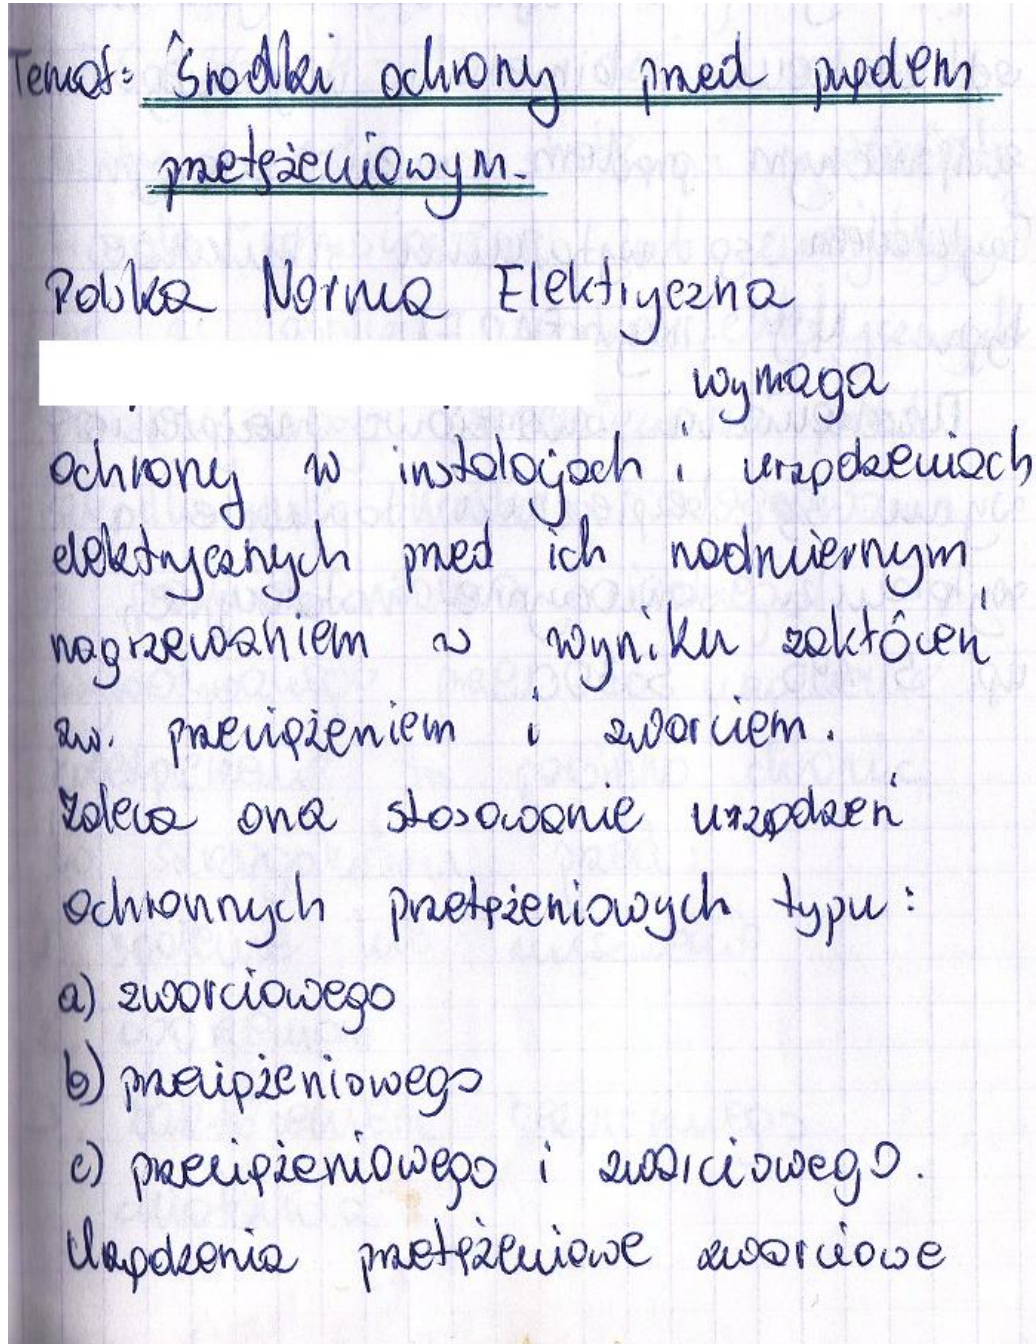 Temat: Środki ochrony przed prądem
przetężeniowym.
Polska Norma Elektryczna
wymaga
ochrony w instalacjach i urządzeniach
elektrycznych przed ich nadmiernym
nagrzewaniem w wyniku zakłóceń
zw. przeciążeniem i zwarciem.
Zaleca ona stosowanie urządzeń
ochronnych przetężeniowych typu:
a) zwarciowego
b) przeciążeniowego
c) przeciążeniowego i zwarciowego.
Urządzenia przetężeniowe zwarciowe